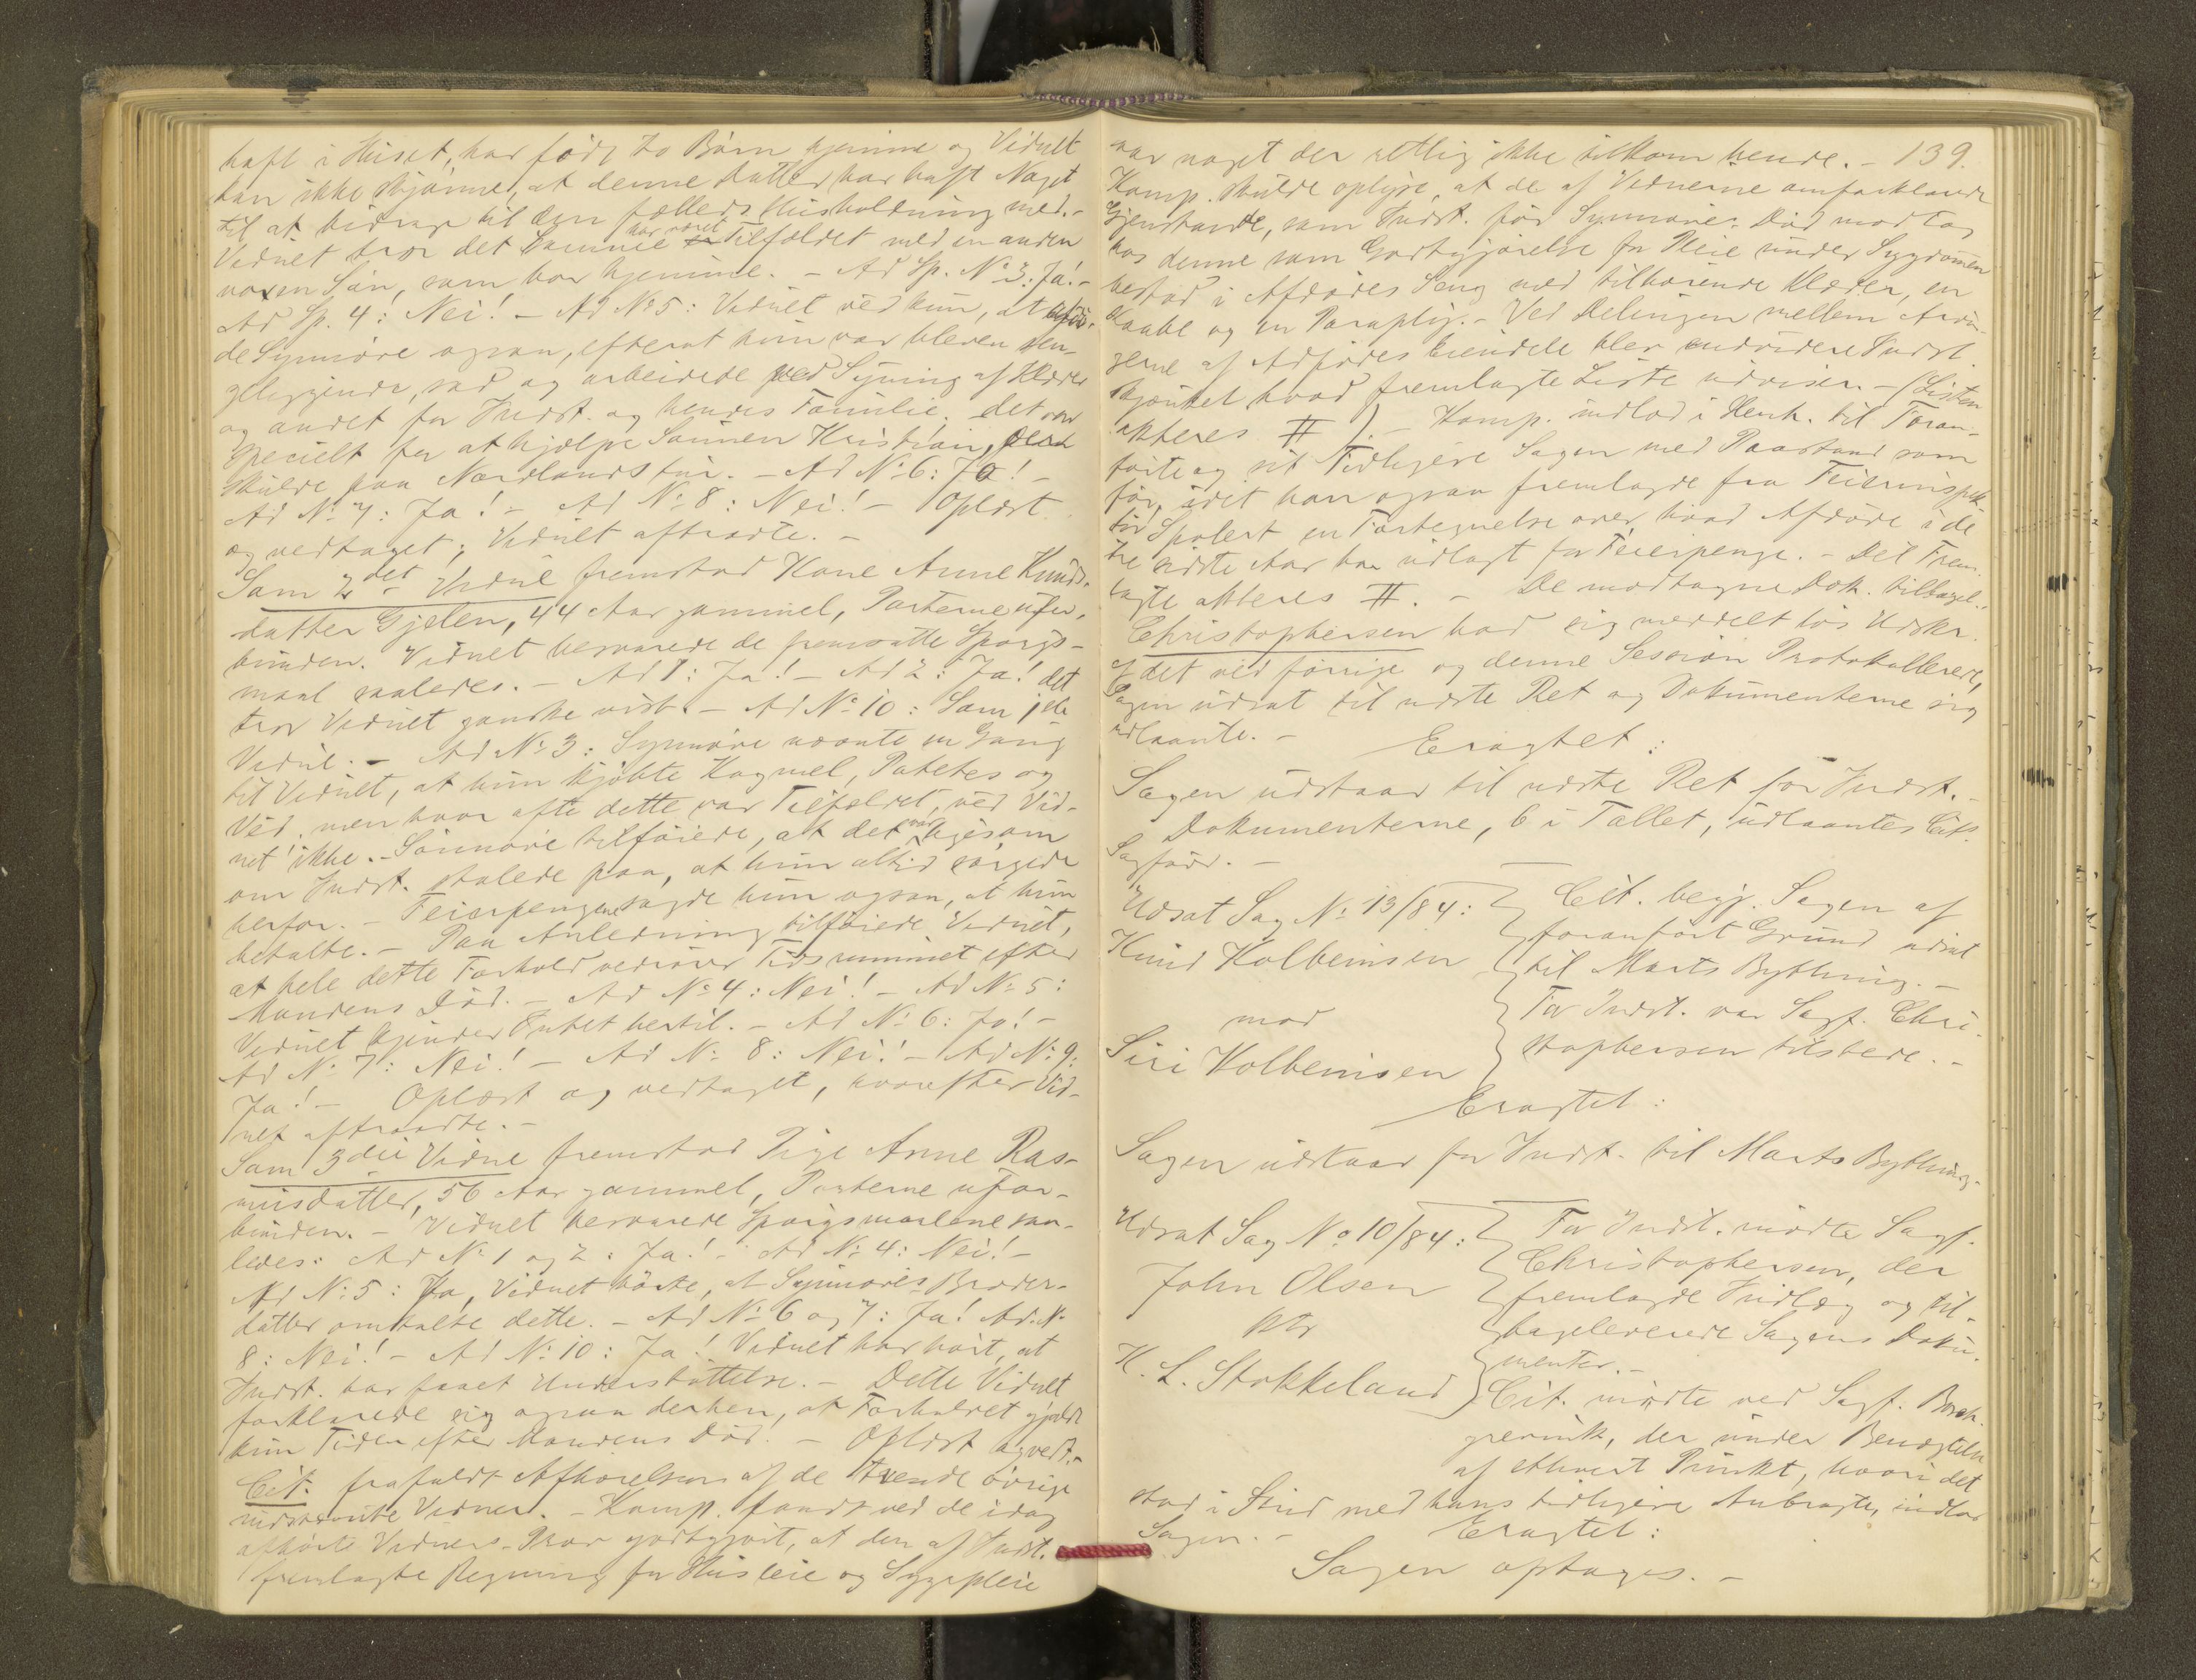 haft i Huset, har født to Børn hjemme og Vidnet
kan ikke skjønne, at denne Datter har haft Noget
til at bidrage til den fælleds Husholdning med. -
Vidnet tror det Samme har været Tilfældet med en anden
voxen Søn, som bor hjemme. - Ad Sp. No 3: Ja! -
Ad Sp. 4: Nei! - Ad No 5: Vidnet ved kun, at afdø-
de Synnøve ogsaa, efterat hun var bleven sen-
geliggende, sad og arbeidede ved Syning af Klæder
og andet for Indst. og hendes Familie, det var
specielt for at hjælpe Sønnen Kristian, der
skulde paa Nordlandstur. - Ad No 6: Ja! -
Ad No 7: Ja! - Ad No 8: Nei! - Oplæst
og vedtaget; Vidnet aftraadte. -
Som 2det Vidne fremstod Kone Anne Knuds-
datter Gjelen, 44 Aar gammel, Parterne ufor-
bunden. Vidnet besvarede de fremsatte Spørgs-
maal saaledes. - Ad 1: Ja! - Ad 2: Ja! det
tror Vidnet ganske vist. - Ad No 10: Som 1ste
Vidne. - Ad No 3: Synnøve nævnte en Gang
til Vidnet, at hun kjøbte Kogmel, Potetes og
Ved, men hvor ofte dette var Tilfældet, ved Vid-
net ikke. - Sønnøve tilføiede, at det var ligesom
om Indst. stolede paa, at hun altid sørgede
herfor. - Feierpengene sagde hun ogsaa, at hun
betalte. - Paa Anledning tilføiede Vidnet,
at hele dette Forhold vedrører Tidsrummet efter
Mandens Død. - Ad No 4: Nei! - Ad No 5:
Vidnet kjender Intet hertil. - Ad No 6: Ja! -
Ad No 7: Nei! - Ad No 8: Nei! - Ad No 9:
Ja! - Oplæst og vedtaget, hvorefter Vid-
net aftraadte. -
Som 3die Vidne fremstod Pige Anne Ras-
musdatter, 56 Aar gammel, Parterne ufor-
bunden. - Vidnet besvarede Spørgsmaalene saa-
ledes: Ad No 1 og 2: Ja! - Ad No 4: Nei! -
Ad No 5: Ja, Vidnet hørte, at Synnøves Broder-
datter omtalte dette. - Ad No 6 og 7: Ja! Ad. No
8: Nei! - Ad No 10: Ja! Vidnet har hørt, at
Indst. har faaet Understøttelse. - Dette Vidnet
forklarede sig ogsaa derhen, at Forholdet gjaldt
kun Tiden efter Mandens Død. - Oplæst og vedt. -
Cit. frafaldt Afhørelsen af de tvende øvrige
indstævnte Vidner. - Komp. fandt ved de idag
afhørte Vidner godtgjort, at den af Indst.
fremlagte Regning for Husleie og Sygepleie
var noget der rettlig ikke tilkom hende. - 139.
Komp. skulde oplyse, at de af Vidnerne omforklarede
Gjenstande, som Indst. før Synnøves Død modtog
hos denne som Godtgjørelse for Pleie under Sygdommen
bestod i Afdødes Seng med tilhørende Klæder, en
Kaabe og en Paraply. - Ved Delingen mellem Arvin-
gerne af Afdødes Eiendele blev endvidere Indst.
skjænket hvad fremlagte Liste udviser. - (Listen
akteres #). - Komp. indlod i Henh. til Foran-
førte og sit Tidligere Sagen med Paastand som
før, idet han ogsaa fremlagde fra Feierinspek-
tør en Fortegnelse over, hvad Afdøde i de
tre sidste Aar har udlagt for Feierpenge. - Det Frem-
lagte akteres #. - De modtagne Dok. tilbagel. -
Christophersen bad sig meddelt løs Udskr.
af det ved forrige og denne Session Protokollerede,
Sagen udsat til næste Ret og Dokumenterne sig
udlaante. -
Eragtet:
Sagen udstaar til næste Ret for Indst. -
Dokumenterne, 6 i Tallet, udlaantes Cits.
Sagfører. -
Udsat Sag No 13/84:
Knud Kolbeinsen
mod
Siri Kolbeinsen
Cit. begj. Sagen af
foranført Grund udsat
til Marts Bything. -
For Indst. var Sagf. Chri-
stophersen tilstede. -
Eragtet:
Sagen udstaar for Indst. til Marts Bything. -
Udsat Sag No 10/84:
John Olsen
ktr
K. L. Stokkeland
For Indst. mødte Sagf.
Christophersen, der
fremlagde Indlæg og til-
bageleverede Sagens Doku-
menter. -
Cit. mødte ved Sagf. Borch-
grevink, der under Benægtelse
af ethvert Punkt, hvori det
stod i Strid med hans tidligere Anbragte, indlod
Sagen. -
Eragtet:
Sagen optages. -